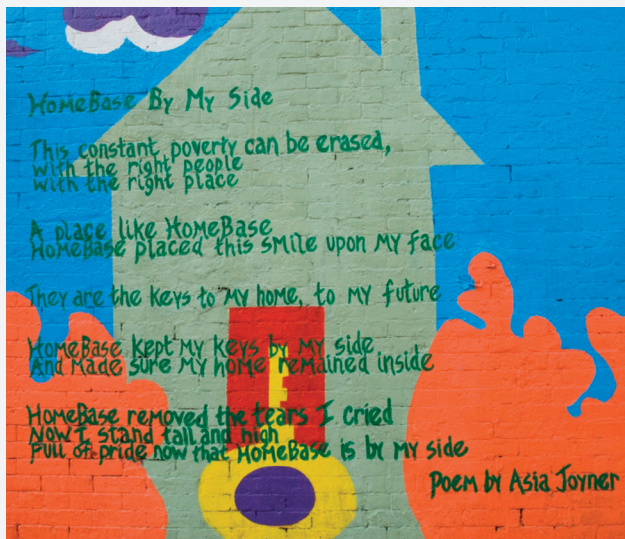 HomeBase By My Side
This constant poverty can be erased,
with the right people
with the right place
A place like HomeBase
HomeBase placed this smile upon my face
They are the keys to my home, to my future
HomeBase kept my keys by my side
And made sure my home remained inside
HomeBase removed the tears I cried
Now I stand tall and high
Full of pride now that HomeBase is by my side
Poem by Asia Joyner